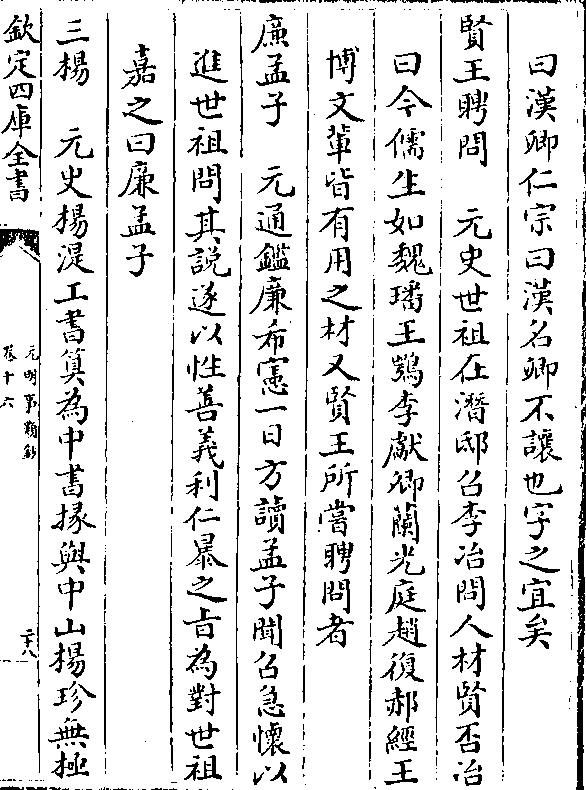 曰漢卿仁宗曰漢名卿不讓也字之宜矣
賢王聘問　元史世祖在潛邸召李冶問人材賢否冶
曰今儒生如魏璠王鶚李獻卿蘭光庭趙復郝經王
博文輩皆有用之材又賢王所嘗聘問者
廉孟子　元通鑑廉希憲一日方讀孟子聞召急懷以
進世祖問其説遂以性善義利仁暴之㫖為對世祖
嘉之曰廉孟子
三楊　元史楊湜工書算為中書掾與中山楊珍無極
欽定四庫全書
元明事類鈔
卷十六
二十八